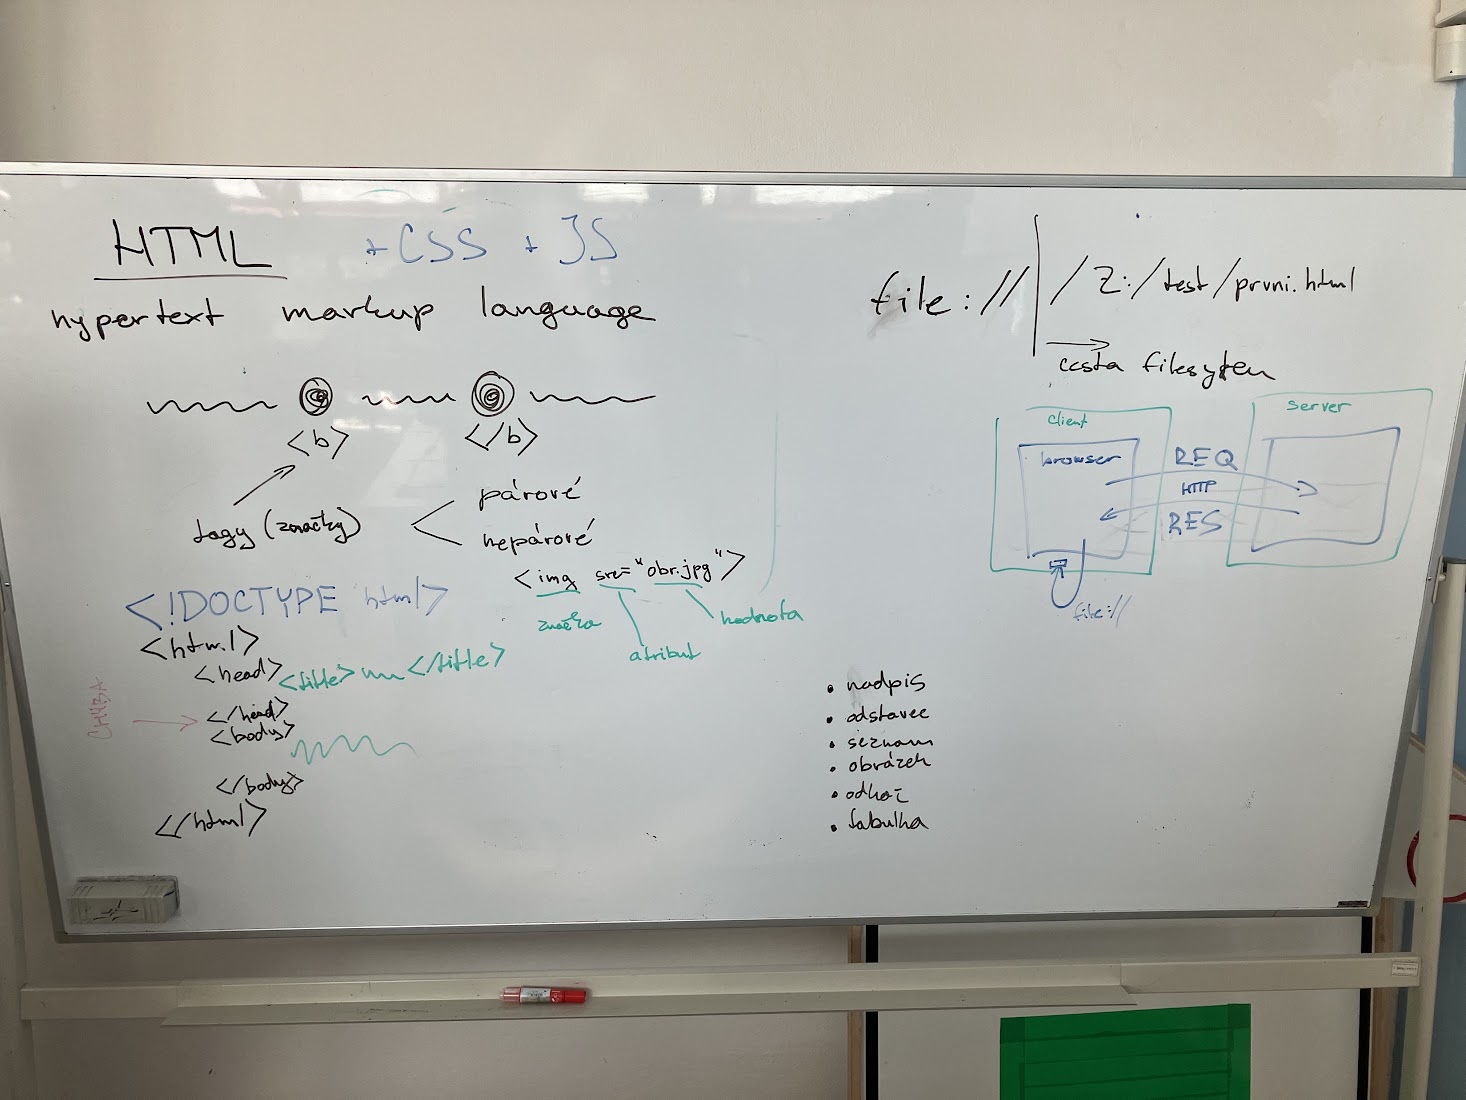 HTML + CSS + JS
hypertext markup language
<b> </b>
tagy (značky)
párové
nepárové
<img src="obr.jpg">
značka
atribut
hodnota
<!DOCTYPE html>
<html>
<head> <title> </title>
CHYBA
</head>
<body>
</body>
</html>
file:// /Z:/test/prvni.html
cesta filesystem
client
server
browser
REQ
HTTP
RES
file://
• nadpis
• odstavec
• seznam
• obrázek
• odkaz
• tabulka